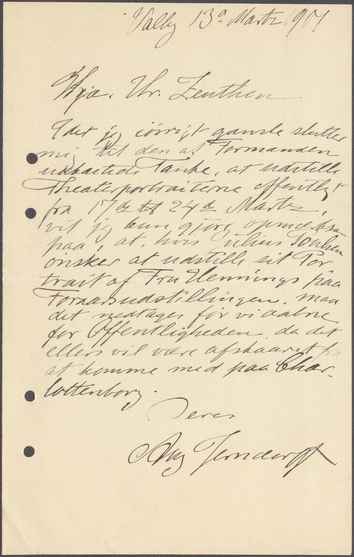 Valby 13de Marts 901
Kjære Hr. Zeuthen
Idet jeg iøvrigt ganske slutter
mig til den af Formanden
udkastede Tanke, at udstille
Theaterportraiterne offentligt
fra 17de til 24de Marts,
vil jeg kun gjøre opmærksom
paa, at, hvis Julius Paulsen
ønsker at udstille sit Por-
trait af Fru Hennings paa
Foraarsudstillingen, maa
det medtages før vi aabne
for Offentligheden, da det
ellers vil være afskaaret fra
at komme med paa Char-
lottenborg.
Deres
Aug Jerndorff